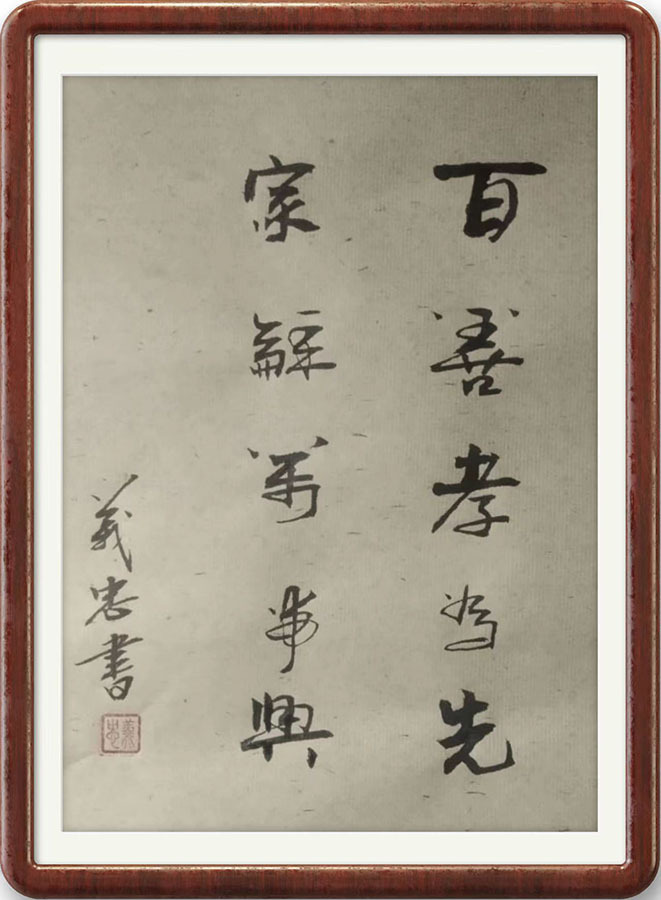 百善孝為先
家龢萬事興
義忠書
義忠